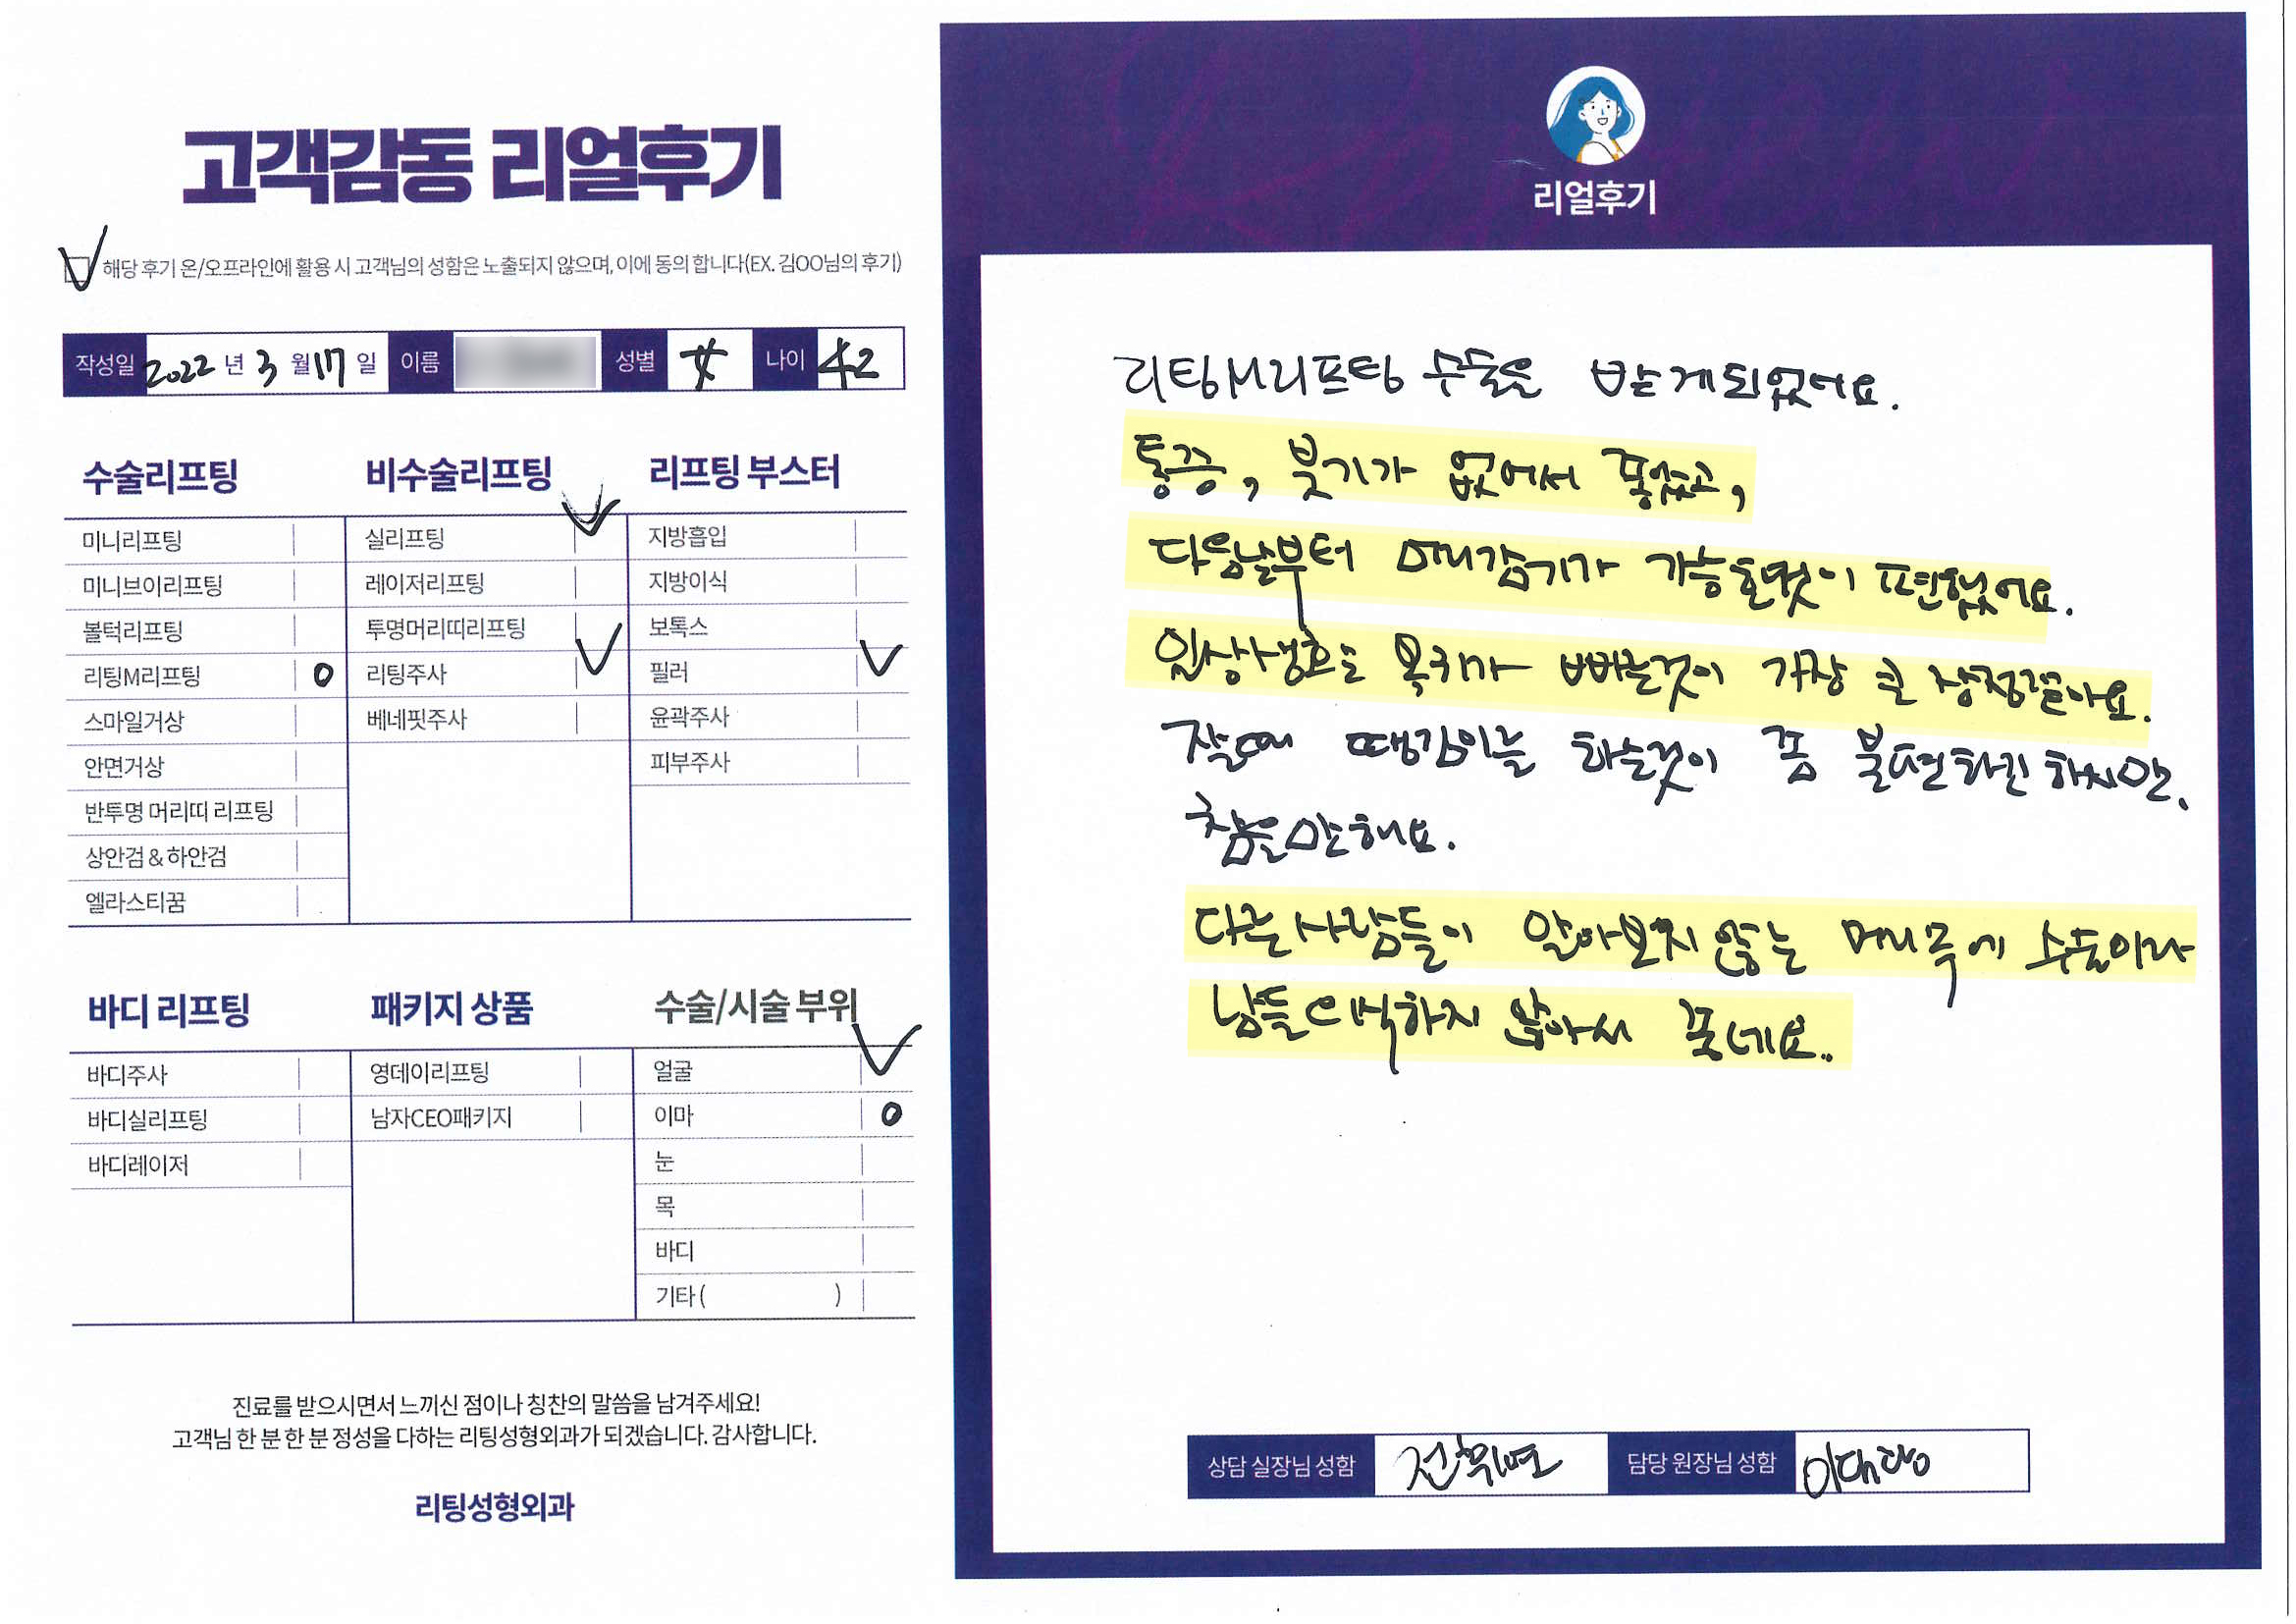 고객감동 리얼후기
해당 후기 온/오프라인에 활용 시 고객님의 성함은 노출되지 않으며, 이에 동의 합니다(EX. 김OO님의 후기)
작성일 2022 년 3 월 17 일 이름 성별 女 나이 42
수술리프팅
미니리프팅
미니브이리프팅
볼턱리프팅
리팅M리프팅 O
스마일거상
안면거상
반투명 머리띠 리프팅
상안검 & 하안검
엘라스티꿈
비수술리프팅
실리프팅
레이저리프팅
투명머리띠리프팅
리팅주사
베네핏주사
리프팅 부스터
지방흡입
지방이식
보톡스
필러
윤곽주사
피부주사
바디 리프팅
바디주사
바디실리프팅
바디레이저
패키지 상품
영데이리프팅
남자CEO패키지
수술/시술 부위
얼굴
이마 O
눈
목
바디
기타 ( )
진료를 받으시면서 느끼신 점이나 칭찬의 말씀을 남겨주세요!
고객님 한 분 한 분 정성을 다하는 리팅성형외과가 되겠습니다. 감사합니다.
리팅성형외과
리얼후기
리팅M리프팅 수술을 받게되었어요.
통증, 붓기가 없어서 좋았고,
다음날부터 머리감기가 가능한것이 편했어요.
일상생활로 복귀가 빠른것이 가장 큰 장점같아요.
잘때 땡김이를 하는것이 좀 불편하긴 하지만,
참을만해요.
다른사람들이 알아보지 않는 머리쪽에 수술이라
남들 의식하지 않아서 좋네요..
상담 실장님 성함 전휘연 담당 원장님 성함